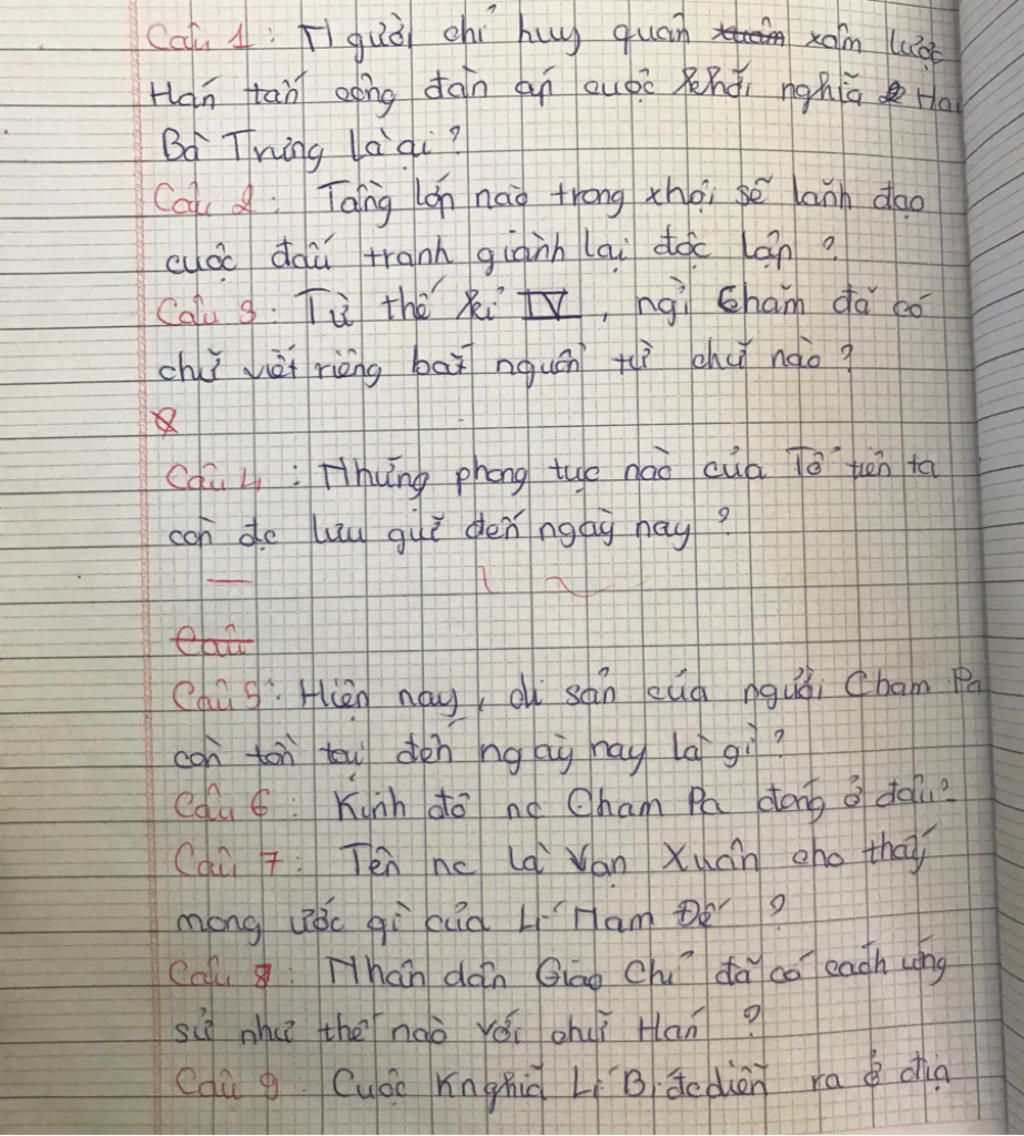 Câu 1: Người chỉ huy quân xâm lược
Hán tấn công đàn áp cuộc khởi nghĩa Hai
Bà Trưng là ai?
Câu 2: Tầng lớp nào trong xhội sẽ lãnh đạo
cuộc đấu tranh giành lại độc lập?
Câu 3: Từ thế kỉ IV, ngì Chăm đã có
chữ viết riêng bắt nguồn từ chữ nào?
Câu 4: Những phong tục nào của Tổ tiên ta
còn đc lưu giữ đến ngày nay?
Câu
Câu 5: Hiện nay, di sản của người Cham Pa
còn tồn tại đến ngày nay là gì?
Câu 6: Kinh đô nc Cham Pa đóng ở đâu?
Câu 7: Tên nc là Vạn Xuân cho thấy
mong ước gì của Lí Nam Đế?
Câu 8: Nhân dân Giao Chỉ đã có cách ứng
sử như thế nào với chữ Hán?
Câu 9: Cuộc Knghĩa Lí Bí đc diễn ra ở địa